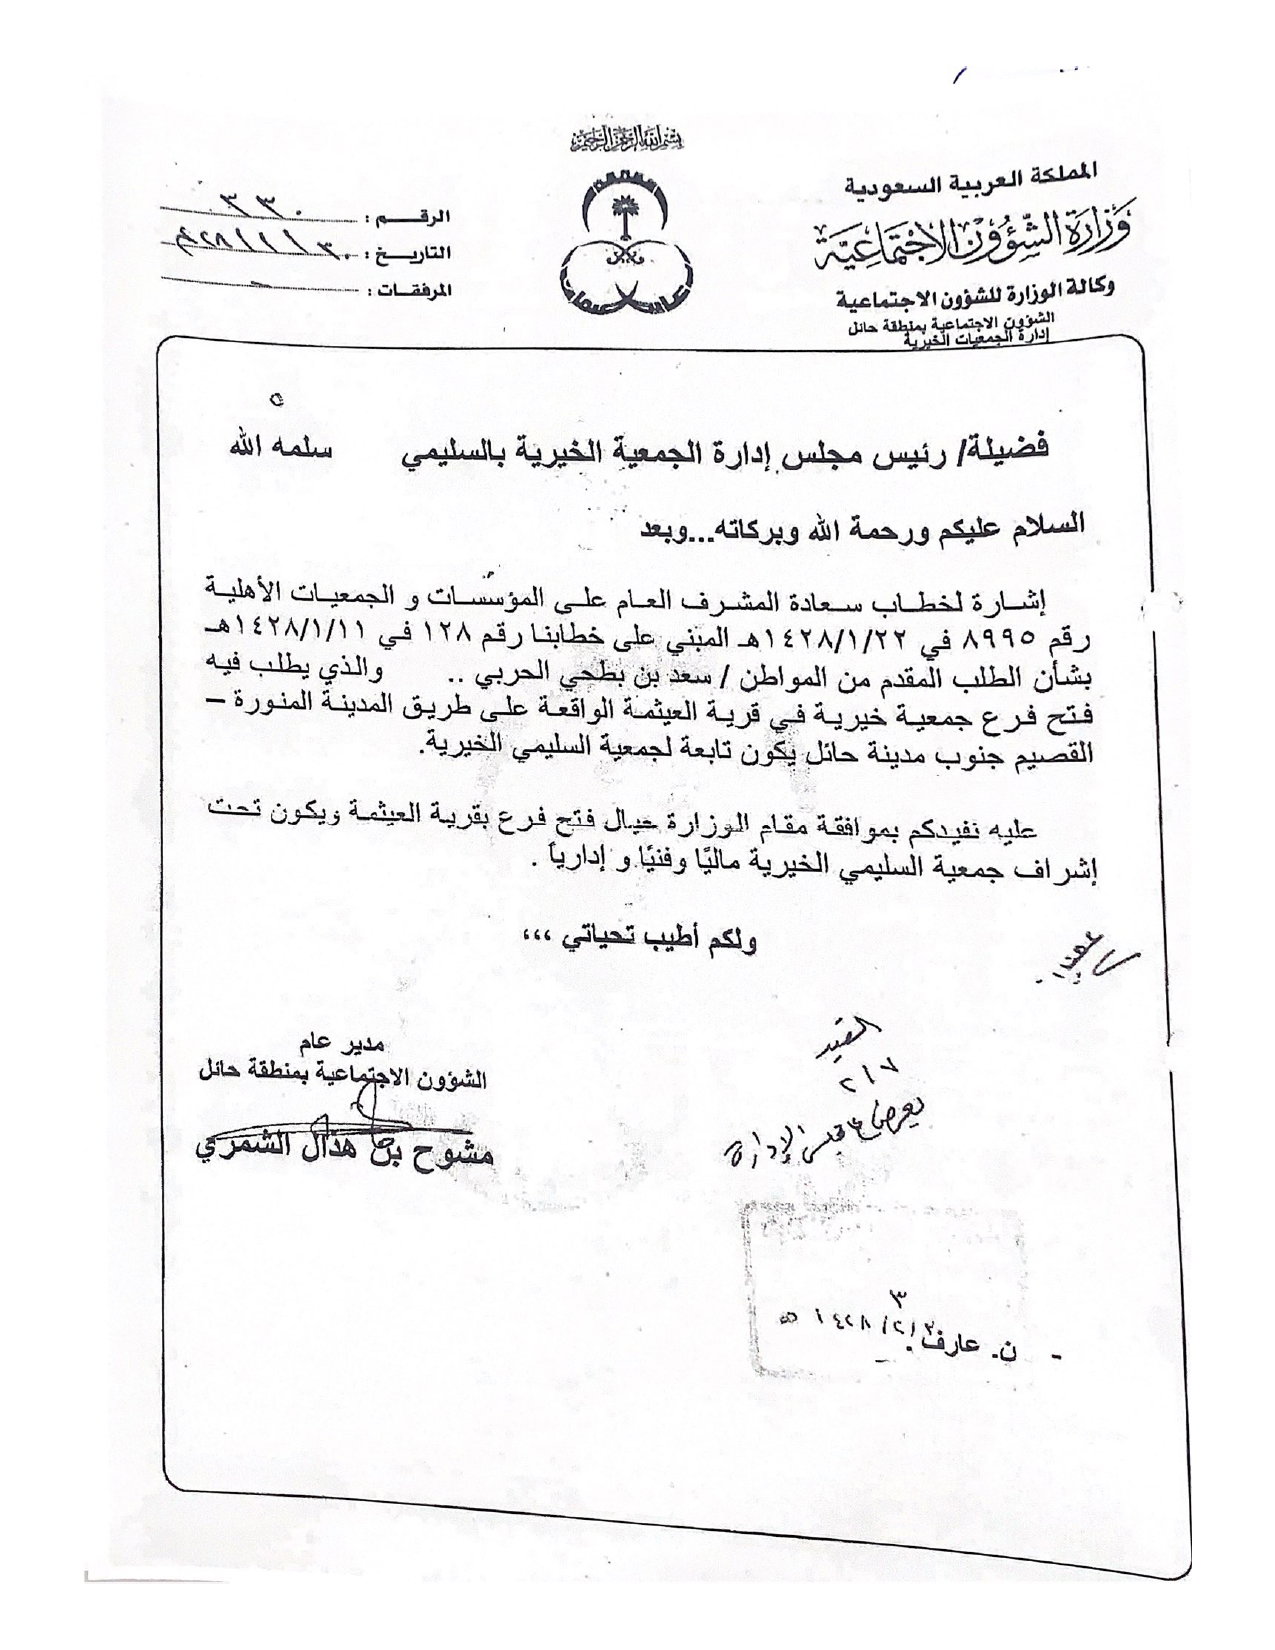 بسم الله الرحمن الرحيم
المملكة العربية السعودية
وزارة الشؤون الاجتماعية
وكالة الوزارة للشؤون الاجتماعية
الشؤون الاجتماعية بمنطقة حائل
إدارة الجمعيات الخيرية
الرقم : ٣٣٠
التاريخ : ٣٠/١/٤٢٨
المرفقات :
فضيلة/ رئيس مجلس إدارة الجمعية الخيرية بالسليمي سلمه الله
السلام عليكم ورحمة الله وبركاته...وبعد
إشارة لخطاب سعادة المشرف العام على المؤسسات و الجمعيات الأهلية
رقم ٨٩٩٥ في ١٤٢٨/١/٢٢هـ المبني على خطابنا رقم ١٢٨ في ١٤٢٨/١/١١هـ
بشأن الطلب المقدم من المواطن / سعد بن بطحي الحربي .. والذي يطلب فيه
فتح فرع جمعية خيرية في قرية العيثمة الواقعة على طريق المدينة المنورة –
القصيم جنوب مدينة حائل يكون تابعة لجمعية السليمي الخيرية.
عليه نفيدكم بموافقة مقام الوزارة حيال فتح فرع بقرية العيثمة ويكون تحت
إشراف جمعية السليمي الخيرية ماليًا وفنيًا و إدارياً .
ولكم أطيب تحياتي ،،،
مدير عام
الشؤون الاجتماعية بمنطقة حائل
مشوح بن هذال الشمري
القيد
٢/٧
يعرض على مجلس الإدارة
- ن. عارف